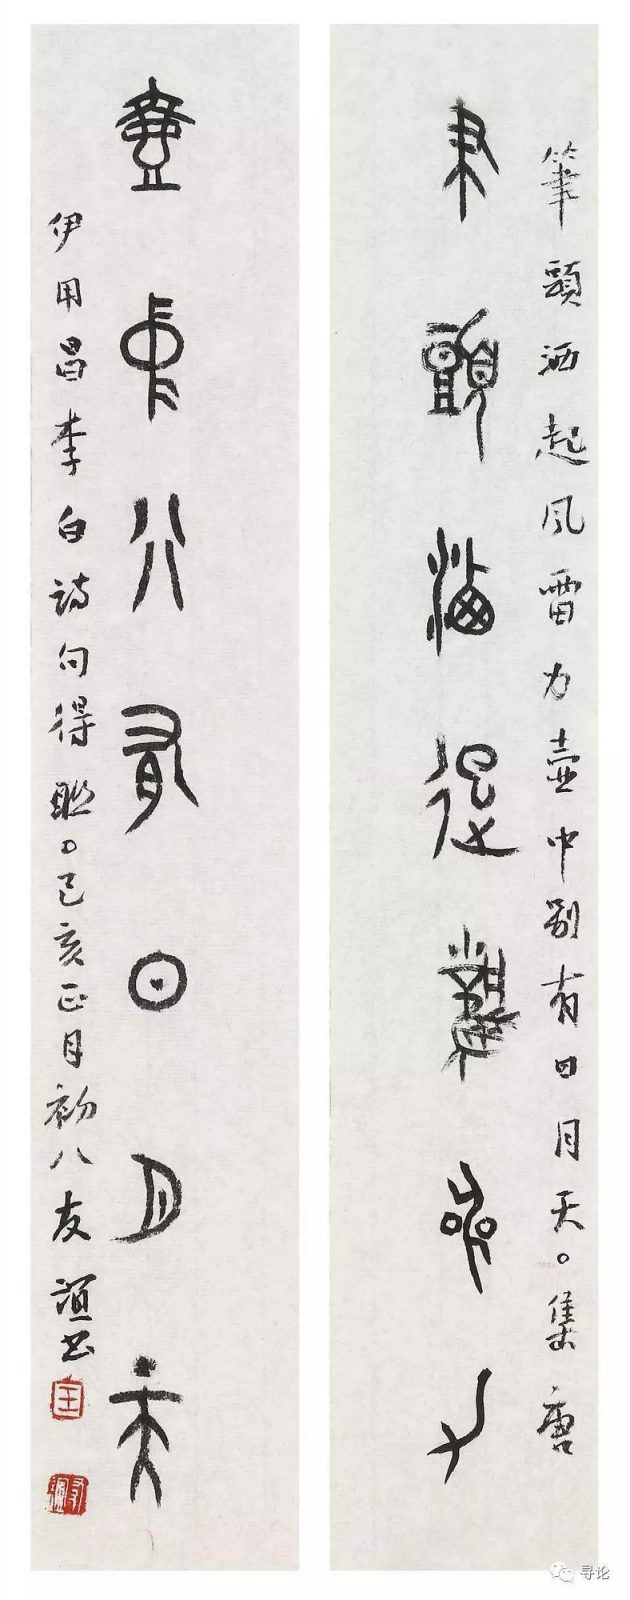 筆頭洒起風雷力
壺中別有日月天
筆頭洒起風雷力壺中別有日月天。集唐
伊用昌李白詩句得聯。己亥正月初八友誼书
寻论